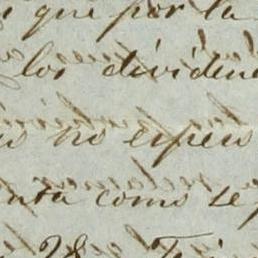 que por la
los dividen
no espero
nta como se
28